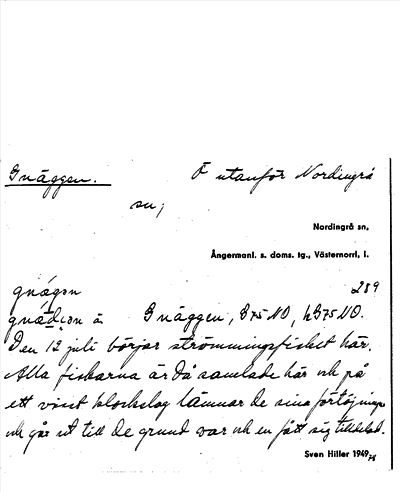 Gnäggen. Ö utanför Nordingrå
sn;
Nordingrå sn.
Ångermanl. s. doms. tg., Västernorrl. l.
289
gnägən
Gnäggen, B75NO, hB75NO.
Den 12 juli börjar strömmingsfisket här.
Alla fiskarna är då samlade här och på
ett visst klockslag lämnar de sina förtöjningar
och går ut till de grund var och en fått sig tilldelat.
Sven Hiller 1949